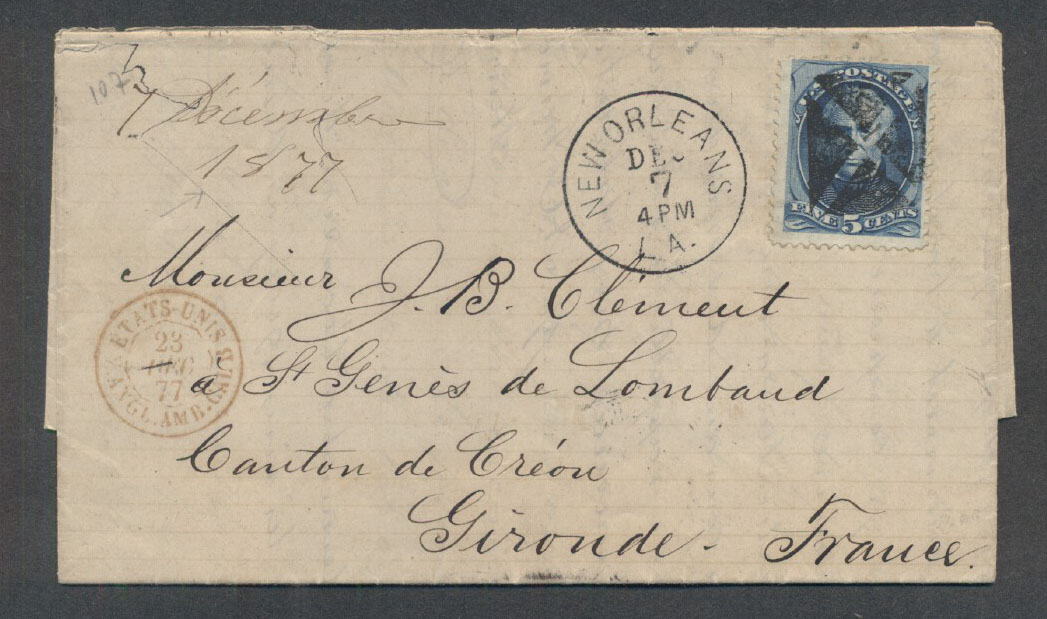 107
7 Décembre
1877
NEW ORLEANS
DEC
7
4 PM
LA.
U.S. POSTAGE
FIVE 5 CENTS
Monsieur J. B. Clément
à St Genès de Lombaud
Canton de Créon
Gironde - France.
ETATS-UNIS
23
DEC
77
ANGL. AMB. CAL. B